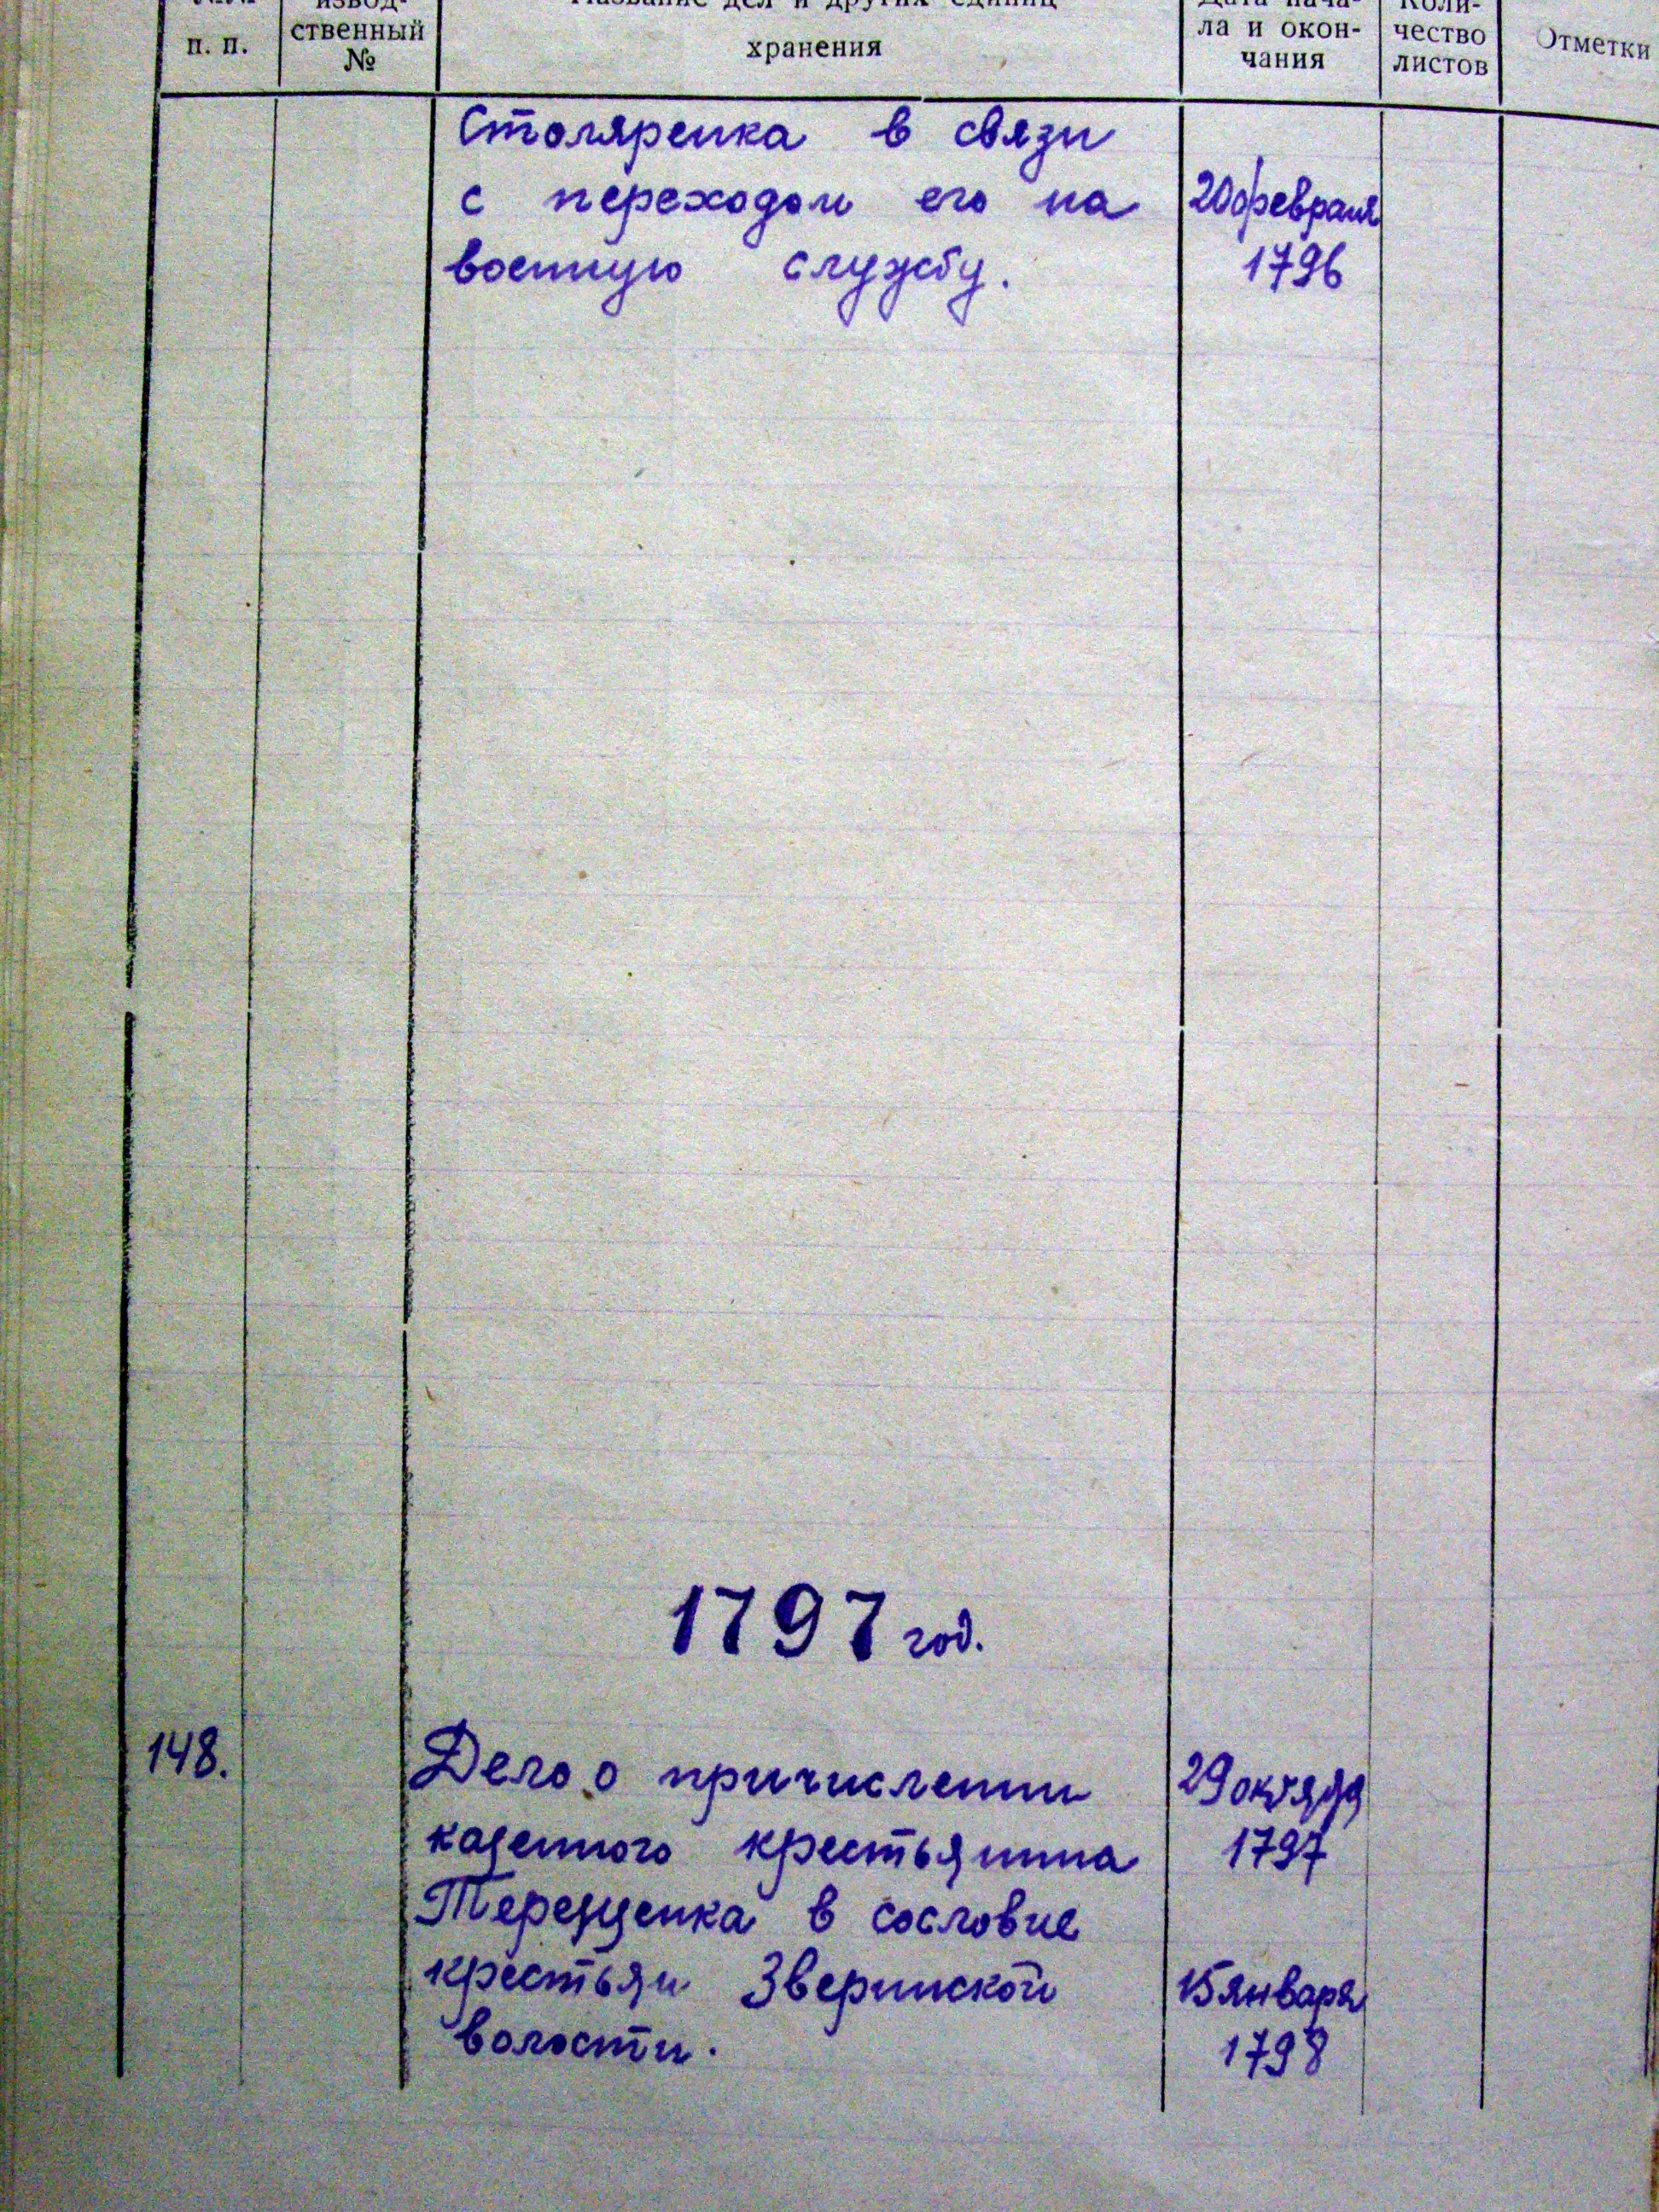 п. п.
ственный
№
Название дел и других единиц
хранения
Дата нача-
ла и окон-
чания
Коли-
чество
листов
Отметки
Столяренка в связи
с переходом его на
военную службу.
20 февраля
1796
1797 год.
148.
Дело о причислении
казенного крестьянина
Терещенка в сословие
крестьян Зверинской
волости.
29 октября
1797
15 января
1798